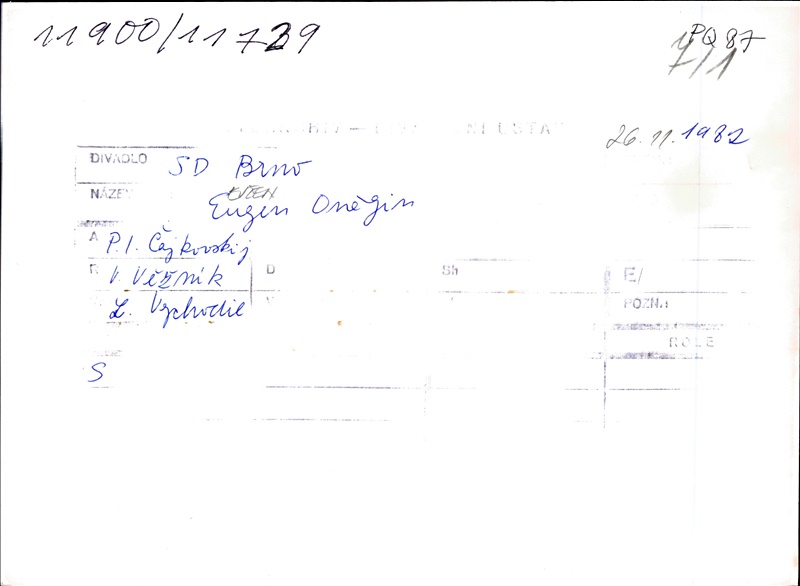 11900/11739
PQ 87
7/1
26.11.1982
DIVADLO SD Brno
NÁZEV EVŽEN
Eugen Oněgin
A P. I. Čajkovskij
R V. Věžník D Sh E/
L. Vychodil POZN.:
ROLE
S